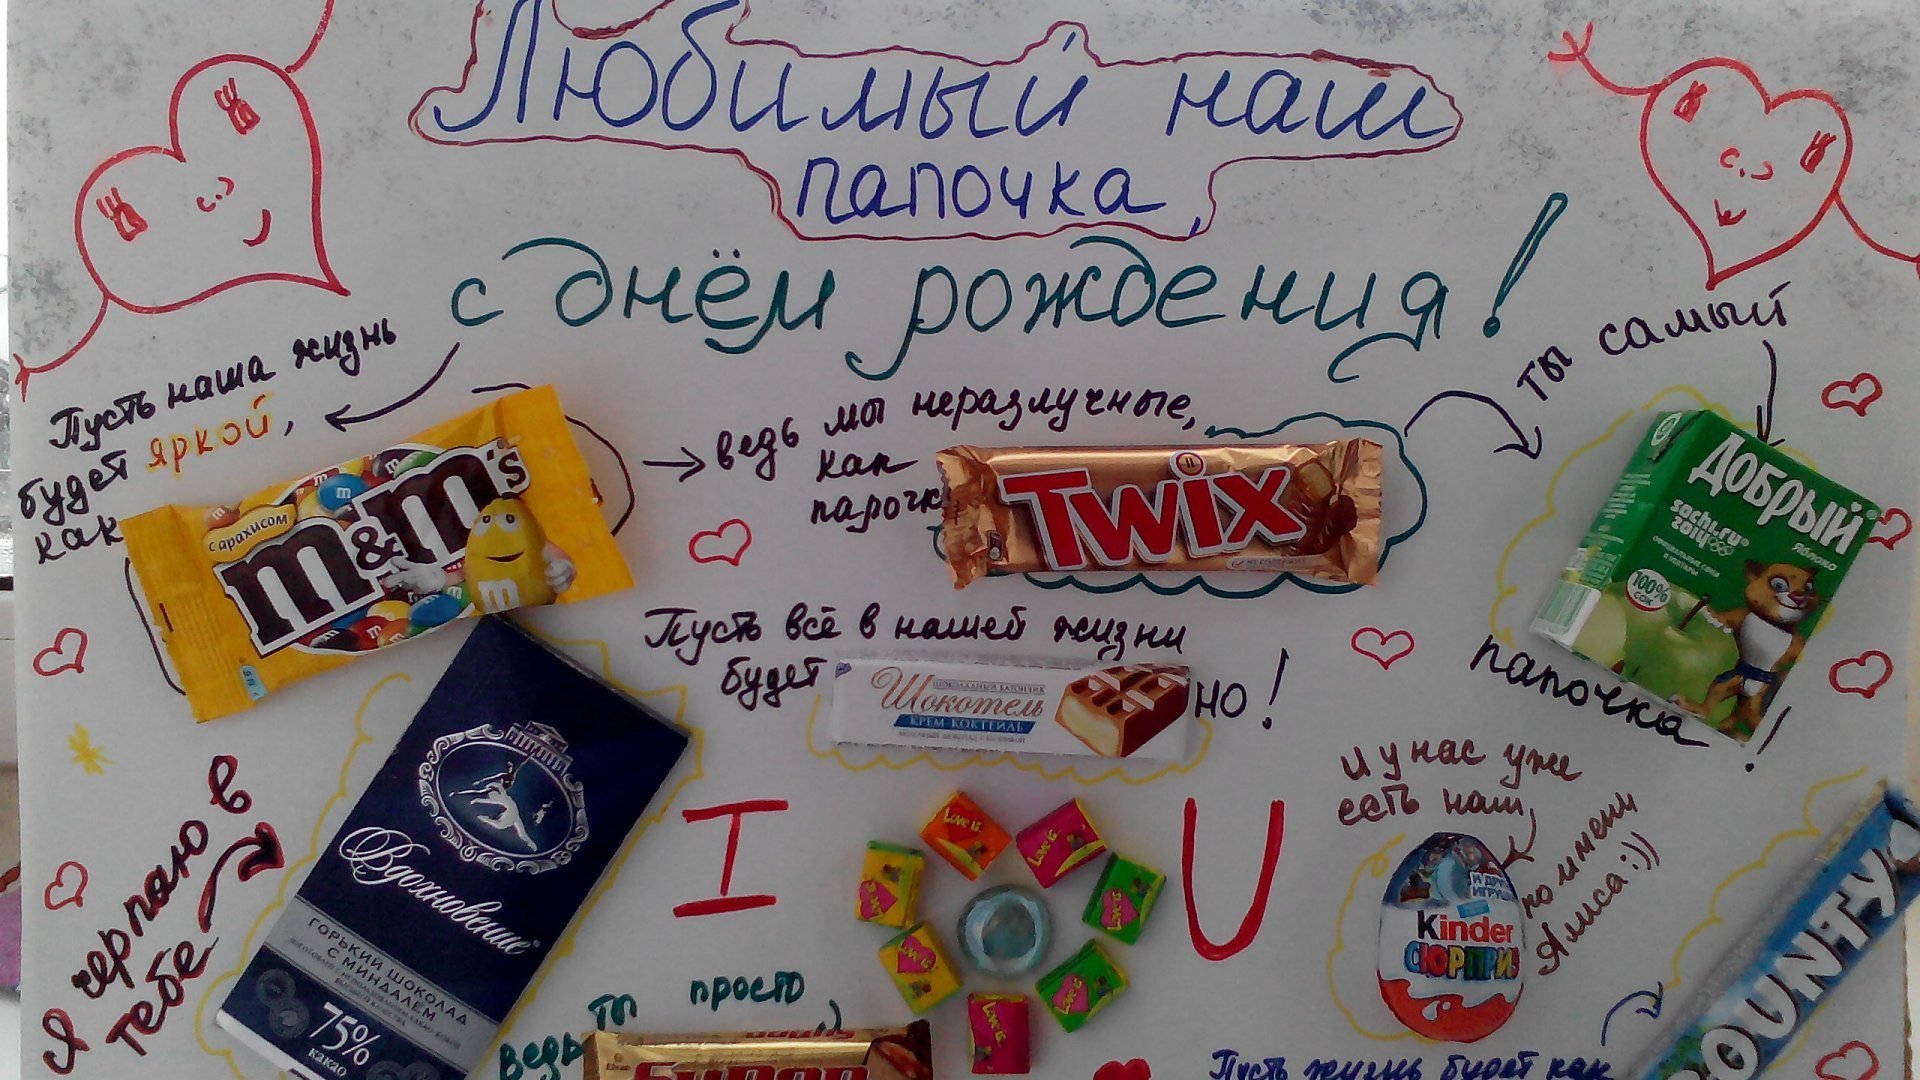 Любимый наш
папочка,
с днём рождения!
Пусть наша жизнь
будет яркой,
как
с арахисом
m&m's
ведь мы неразлучные,
как
парочк
TWIX
ты самый
Добрый
sochi.ru
2014
Яблоко
100%
СОК
папочка!
Пусть всё в нашей жизни
будет
ШОКОЛАДНЫЙ БАТОНЧИК
Шокотель
КРЕМ-КОКТЕЙЛЬ
но!
Я черпаю в
тебе
Вдохновение
ГОРЬКИЙ ШОКОЛАД
С МИНДАЛЁМ
75%
какао
I
Love is
Love is
Love is
Love is
Love is
Love is
Love is
U
И у нас уже
есть наш
Kinder
СЮРПРИЗ
по имени
Алиса:))
ведь ты просто
Супер
Пусть жизнь будет как
BOUNTY